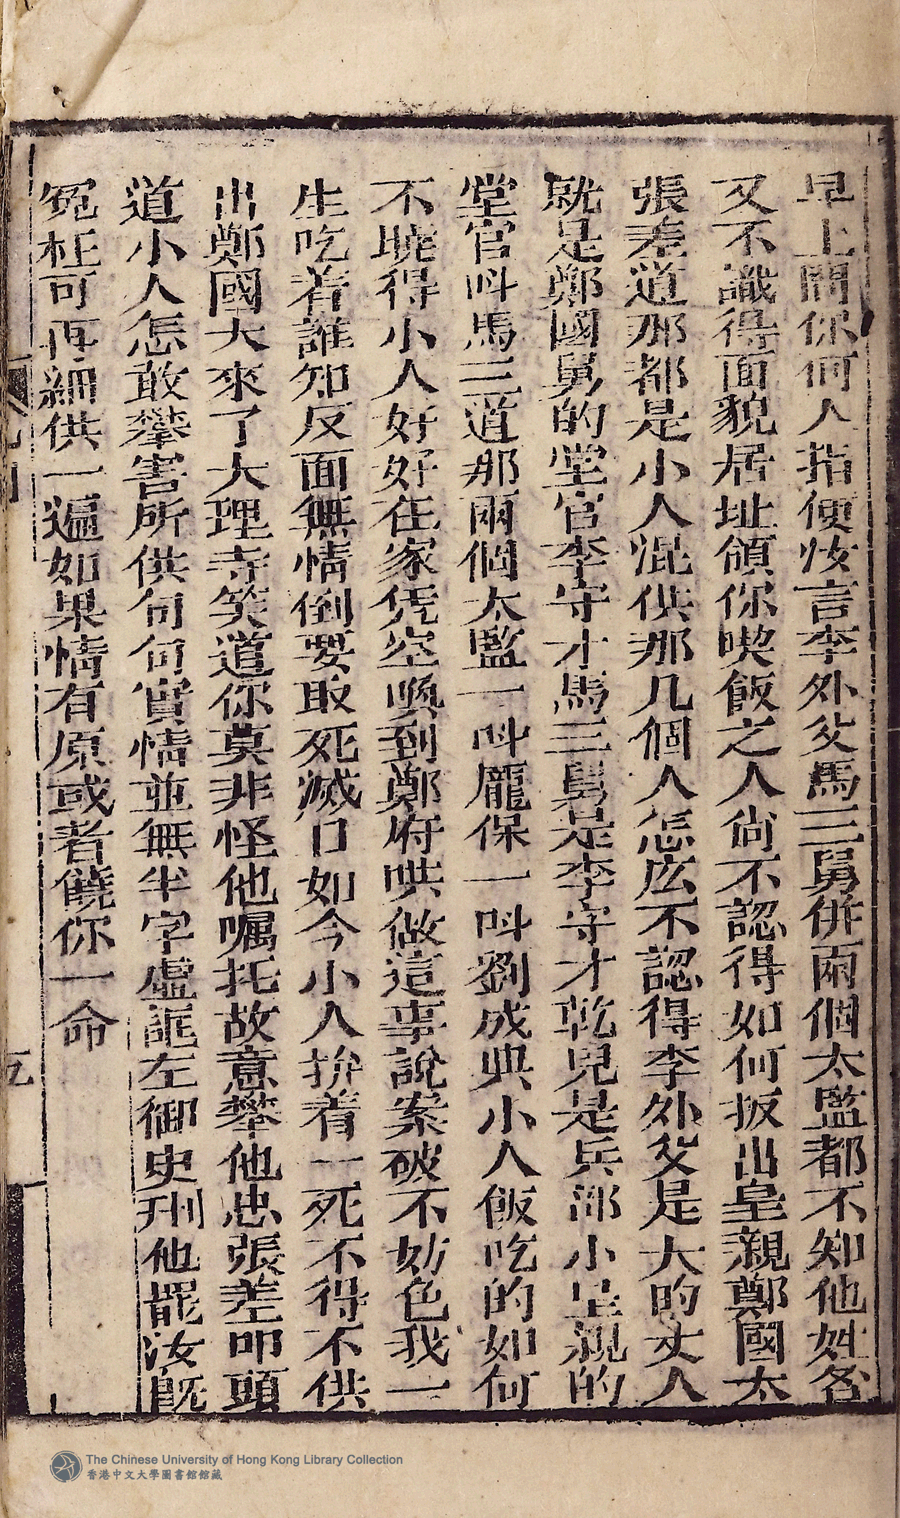 早上問你何人指使汝言李外父馬三舅併兩個太監都不知他姓名
又不識得面貌居址領你喫飯之人尙不認得如何扳出皇親鄭國太
張差道那都是小人混供那几個人怎広不認得李外父是大的丈人
就是鄭國舅的堂官李守才馬三舅是李守才乾兒是兵部小皇親的
堂官呌馬三道那兩個太監一呌龐保一呌劉成與小人飯吃的如何
不曉得小人好好在家凭空喚到鄭府哄做這事說案破不妨色我一
生吃着誰知反面無情倒要取死滅口如今小人拚着一死不得不供
出鄭國太來了大理寺笑道你莫非怪他嘱托故意攀他忠張差叩頭
道小人怎敢攀害所供句句實情並無半字虛誑左御史刑他罷汝旣
冤枉可再細供一遍如果情有原或者饒你一命
The Chinese University of Hong Kong Library Collection
香港中文大學圖書館館藏